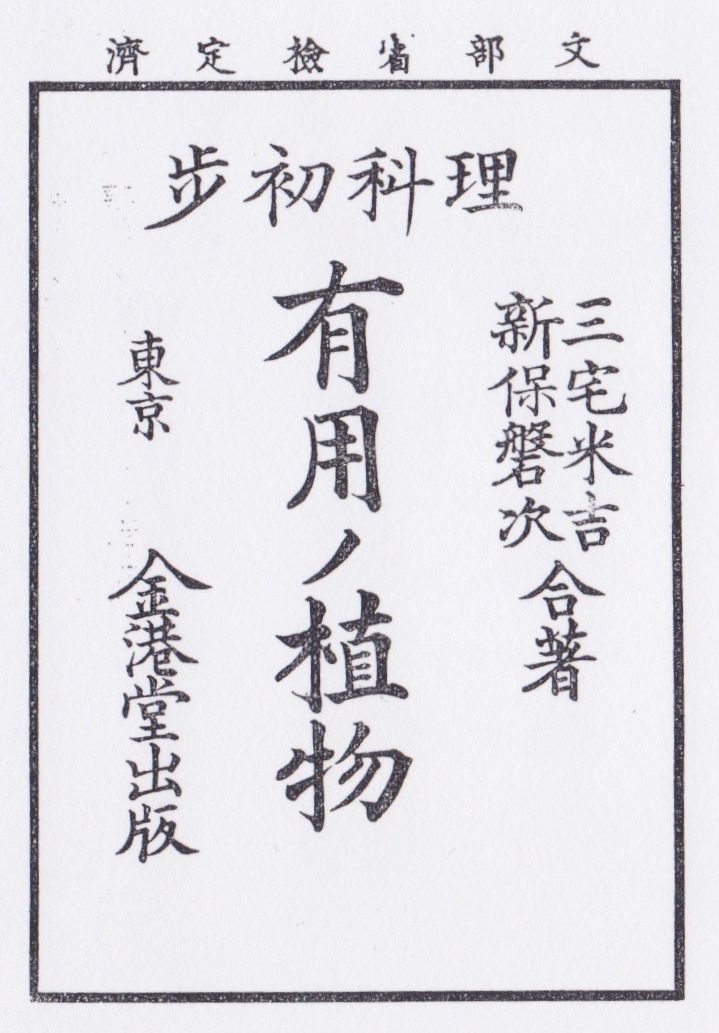 文部省檢定濟
理科初步
三宅米吉
新保磐次
合著
有用ノ植物
東京
金港堂出版